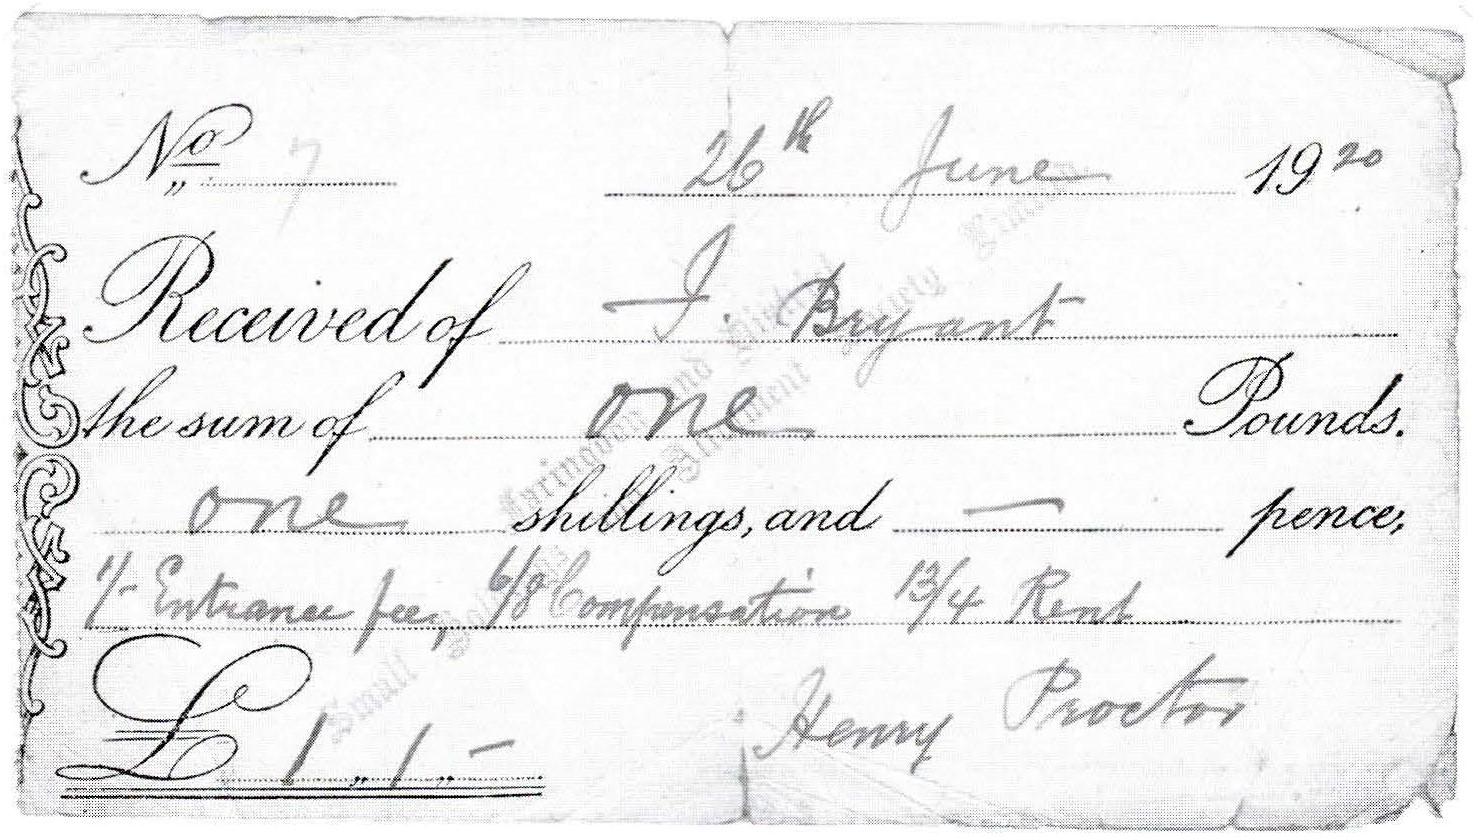 No. 7 26th June 1920
Received of I. Bryant
the sum of one Pounds.
one shillings, and — pence,
1/- Entrance fee, 6/8 Compensation 13/4 Rent
£ 1 „ 1 „ - Henry Proctor
Faringdon and District
Small Holdings & Allotment Society Limited